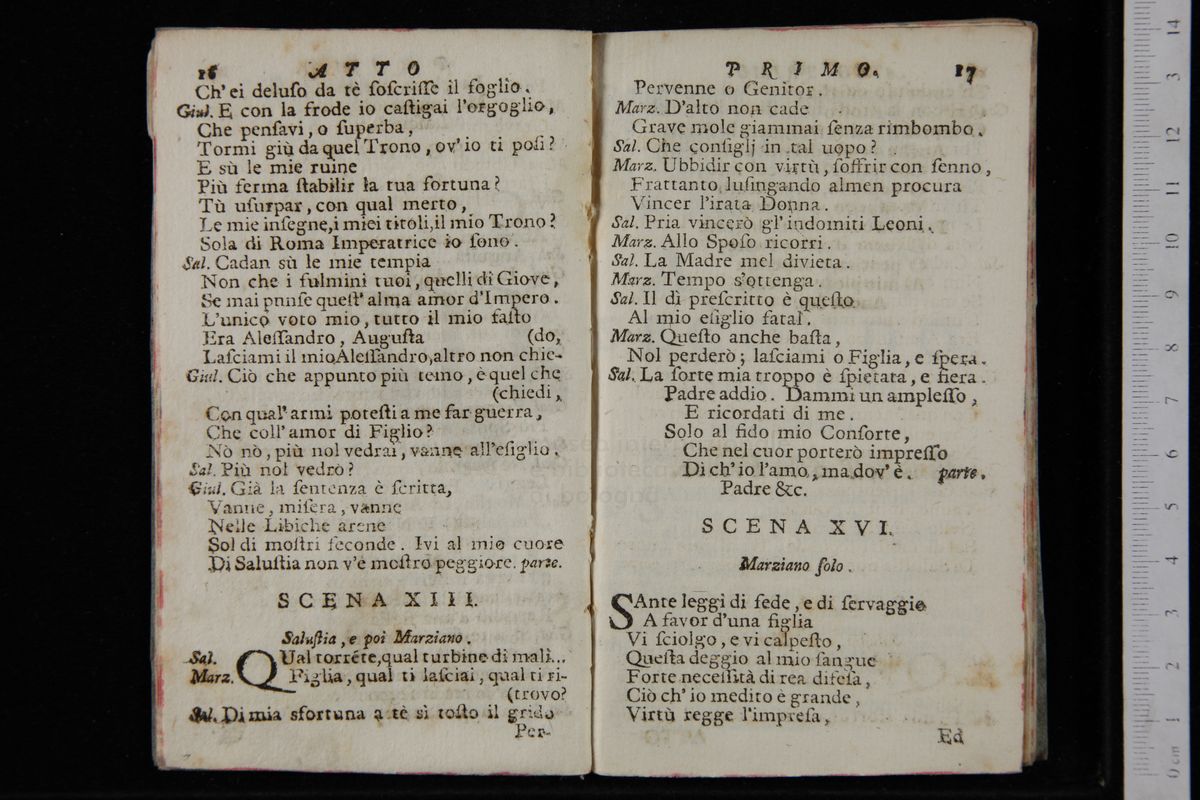 16 ATTO
Ch' ei deluso da tè soscrisse il foglio.
Giul. E con la frode io castigai l'orgoglio,
Che pensavi, o superba,
Tormi giù da quel Trono, ov' io ti posi?
E sù le mie ruine
Più ferma stabilir la tua fortuna?
Tù usurpar, con qual merto,
Le mie insegne,i miei titoli,il mio Trono?
Sola di Roma Imperatrice io sono.
Sal. Cadan sù le mie tempia
Non che i fulmini tuoi, quelli di Giove,
Se mai punse quest' alma amor d'Impero.
L'unico voto mio, tutto il mio fasto
Era Alessandro, Augusta (do,
Lasciami il mio Alessandro,altro non chie-
Giul. Ciò che appunto più temo, è quel che
(chiedi,
Con qual' armi potesti a me far guerra,
Che coll' amor di Figlio?
Nò nò, più nol vedrai, vanne all'esiglio.
Sal. Più nol vedrò?
Giul. Già la sentenza è scritta,
Vanne, misera, vanne
Nelle Libiche arene
Sol di mostri feconde. Ivi al mio cuore
Di Salustia non v'è mostro peggiore. parte.
SCENA XIII.
Salustia, e poi Marziano.
Sal. QUal torrẽte,qual turbine di mali..
Marz. Figlia, qual ti lasciai, qual ti ri-
(trovo?
Sal. Di mia sfortuna a tè sì tosto il grido
Per-
PRIMO. 17
Pervenne o Genitor.
Marz. D'alto non cade
Grave mole giammai senza rimbombo.
Sal. Che consiglj in tal uopo?
Marz. Ubbidir con virtù, soffrir con senno,
Frattanto lusingando almen procura
Vincer l'irata Donna.
Sal. Pria vincerò gl' indomiti Leoni.
Marz. Allo Sposo ricorri.
Sal. La Madre mel divieta.
Marz. Tempo s'ottenga.
Sal. Il dì prescritto è questo
Al mio esiglio fatal.
Marz. Questo anche basta,
Nol perderò; lasciami o Figlia, e spera.
Sal. La sorte mia troppo è spietata, e fiera.
Padre addio. Dammi un amplesso,
E ricordati di me.
Solo al fido mio Consorte,
Che nel cuor porterò impresso
Di ch' io l'amo, ma dov' è. parte.
Padre &c.
SCENA XVI.
Marziano solo.
SAnte leggi di fede, e di servaggio
A favor d'una figlia
Vi sciolgo, e vi calpesto,
Questa deggio al mio sangue
Forte necessità di rea difesa,
Ciò ch' io medito è grande,
Virtù regge l'impresa,
Ed